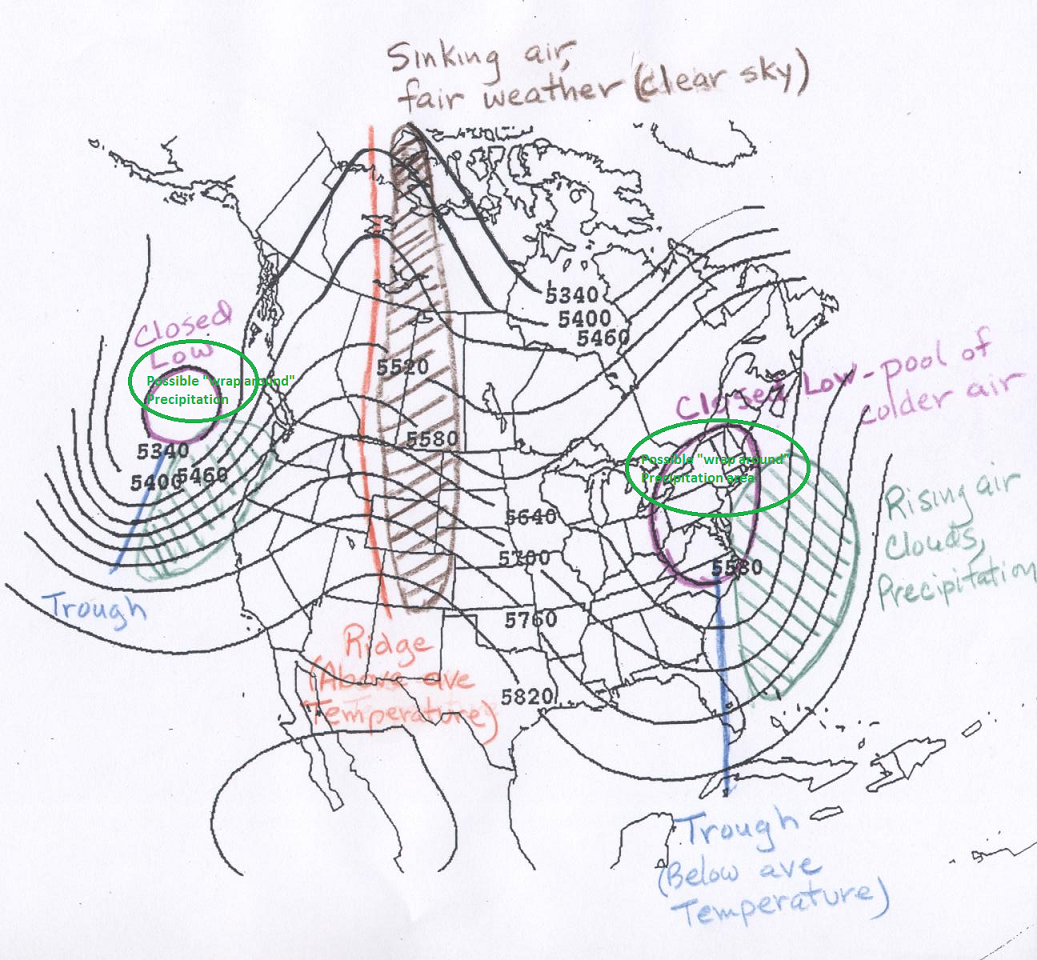 Sinking air,
fair weather (clear sky)
Closed
Low
Possible "wrap around"
Precipitation
5340
5400
5460
5340
5400
5460
5520
5580
Closed Low-pool of
colder air
Possible "wrap around"
Precipitation area
5640
5700
5580
5760
5820
Rising air
Clouds,
Precipitation
Trough
Ridge
(Above ave
Temperature)
Trough
(Below ave
Temperature)